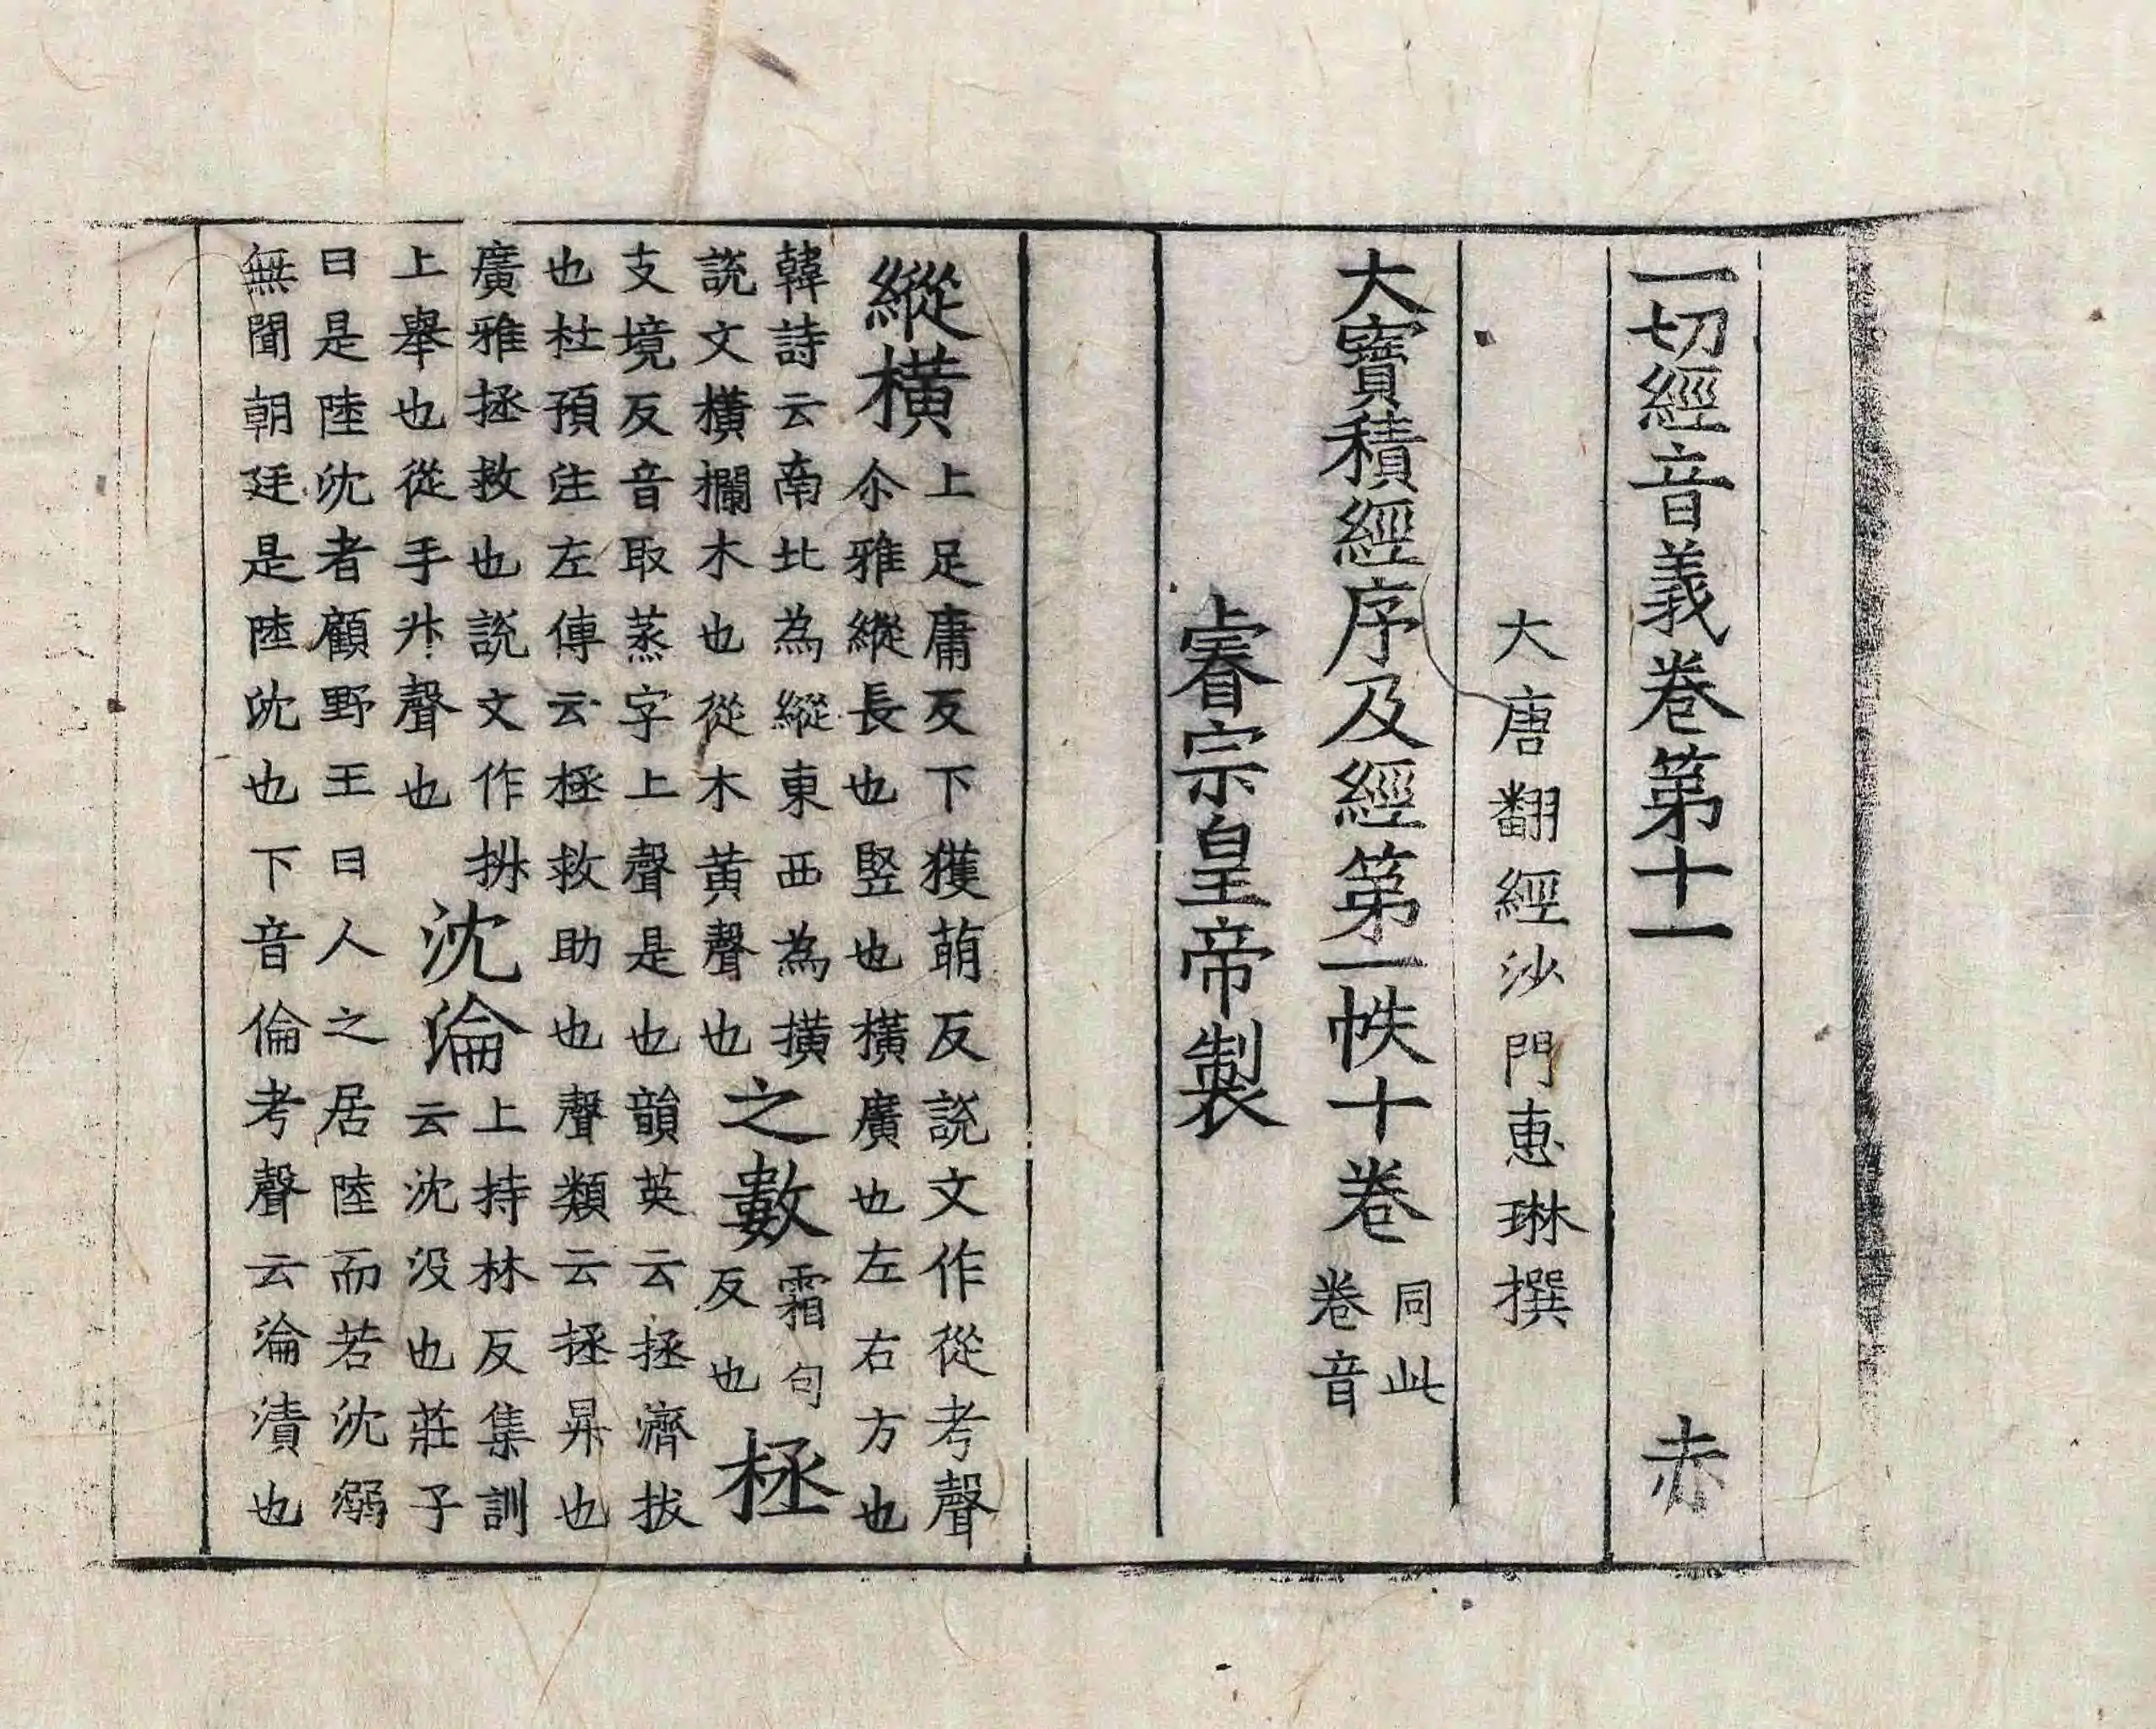 一切經音義卷第十一 赤
大唐翻經沙門惠琳撰
大寶積經序及經第一帙十卷 同此卷音
睿宗皇帝製
縱橫 上足庸反下獲萌反說文作從考聲
尒雅縱長也竪也橫廣也左右方也
韓詩云南北為縱東西為撗
說文橫欄木也從木黃聲也 之數 霜句反也 拯
支境反音取蒸字上聲是也韻英云拯濟拔
也杜預注左傳云拯救助也聲類云拯昇也
廣雅拯救也說文作抍
上舉也從手升聲也 沈淪 上持林反集訓
云沈沒也莊子
曰是陸沈者顧野王曰人之居陸而若沈溺
無聞朝廷是陸沈也下音倫考聲云淪漬也